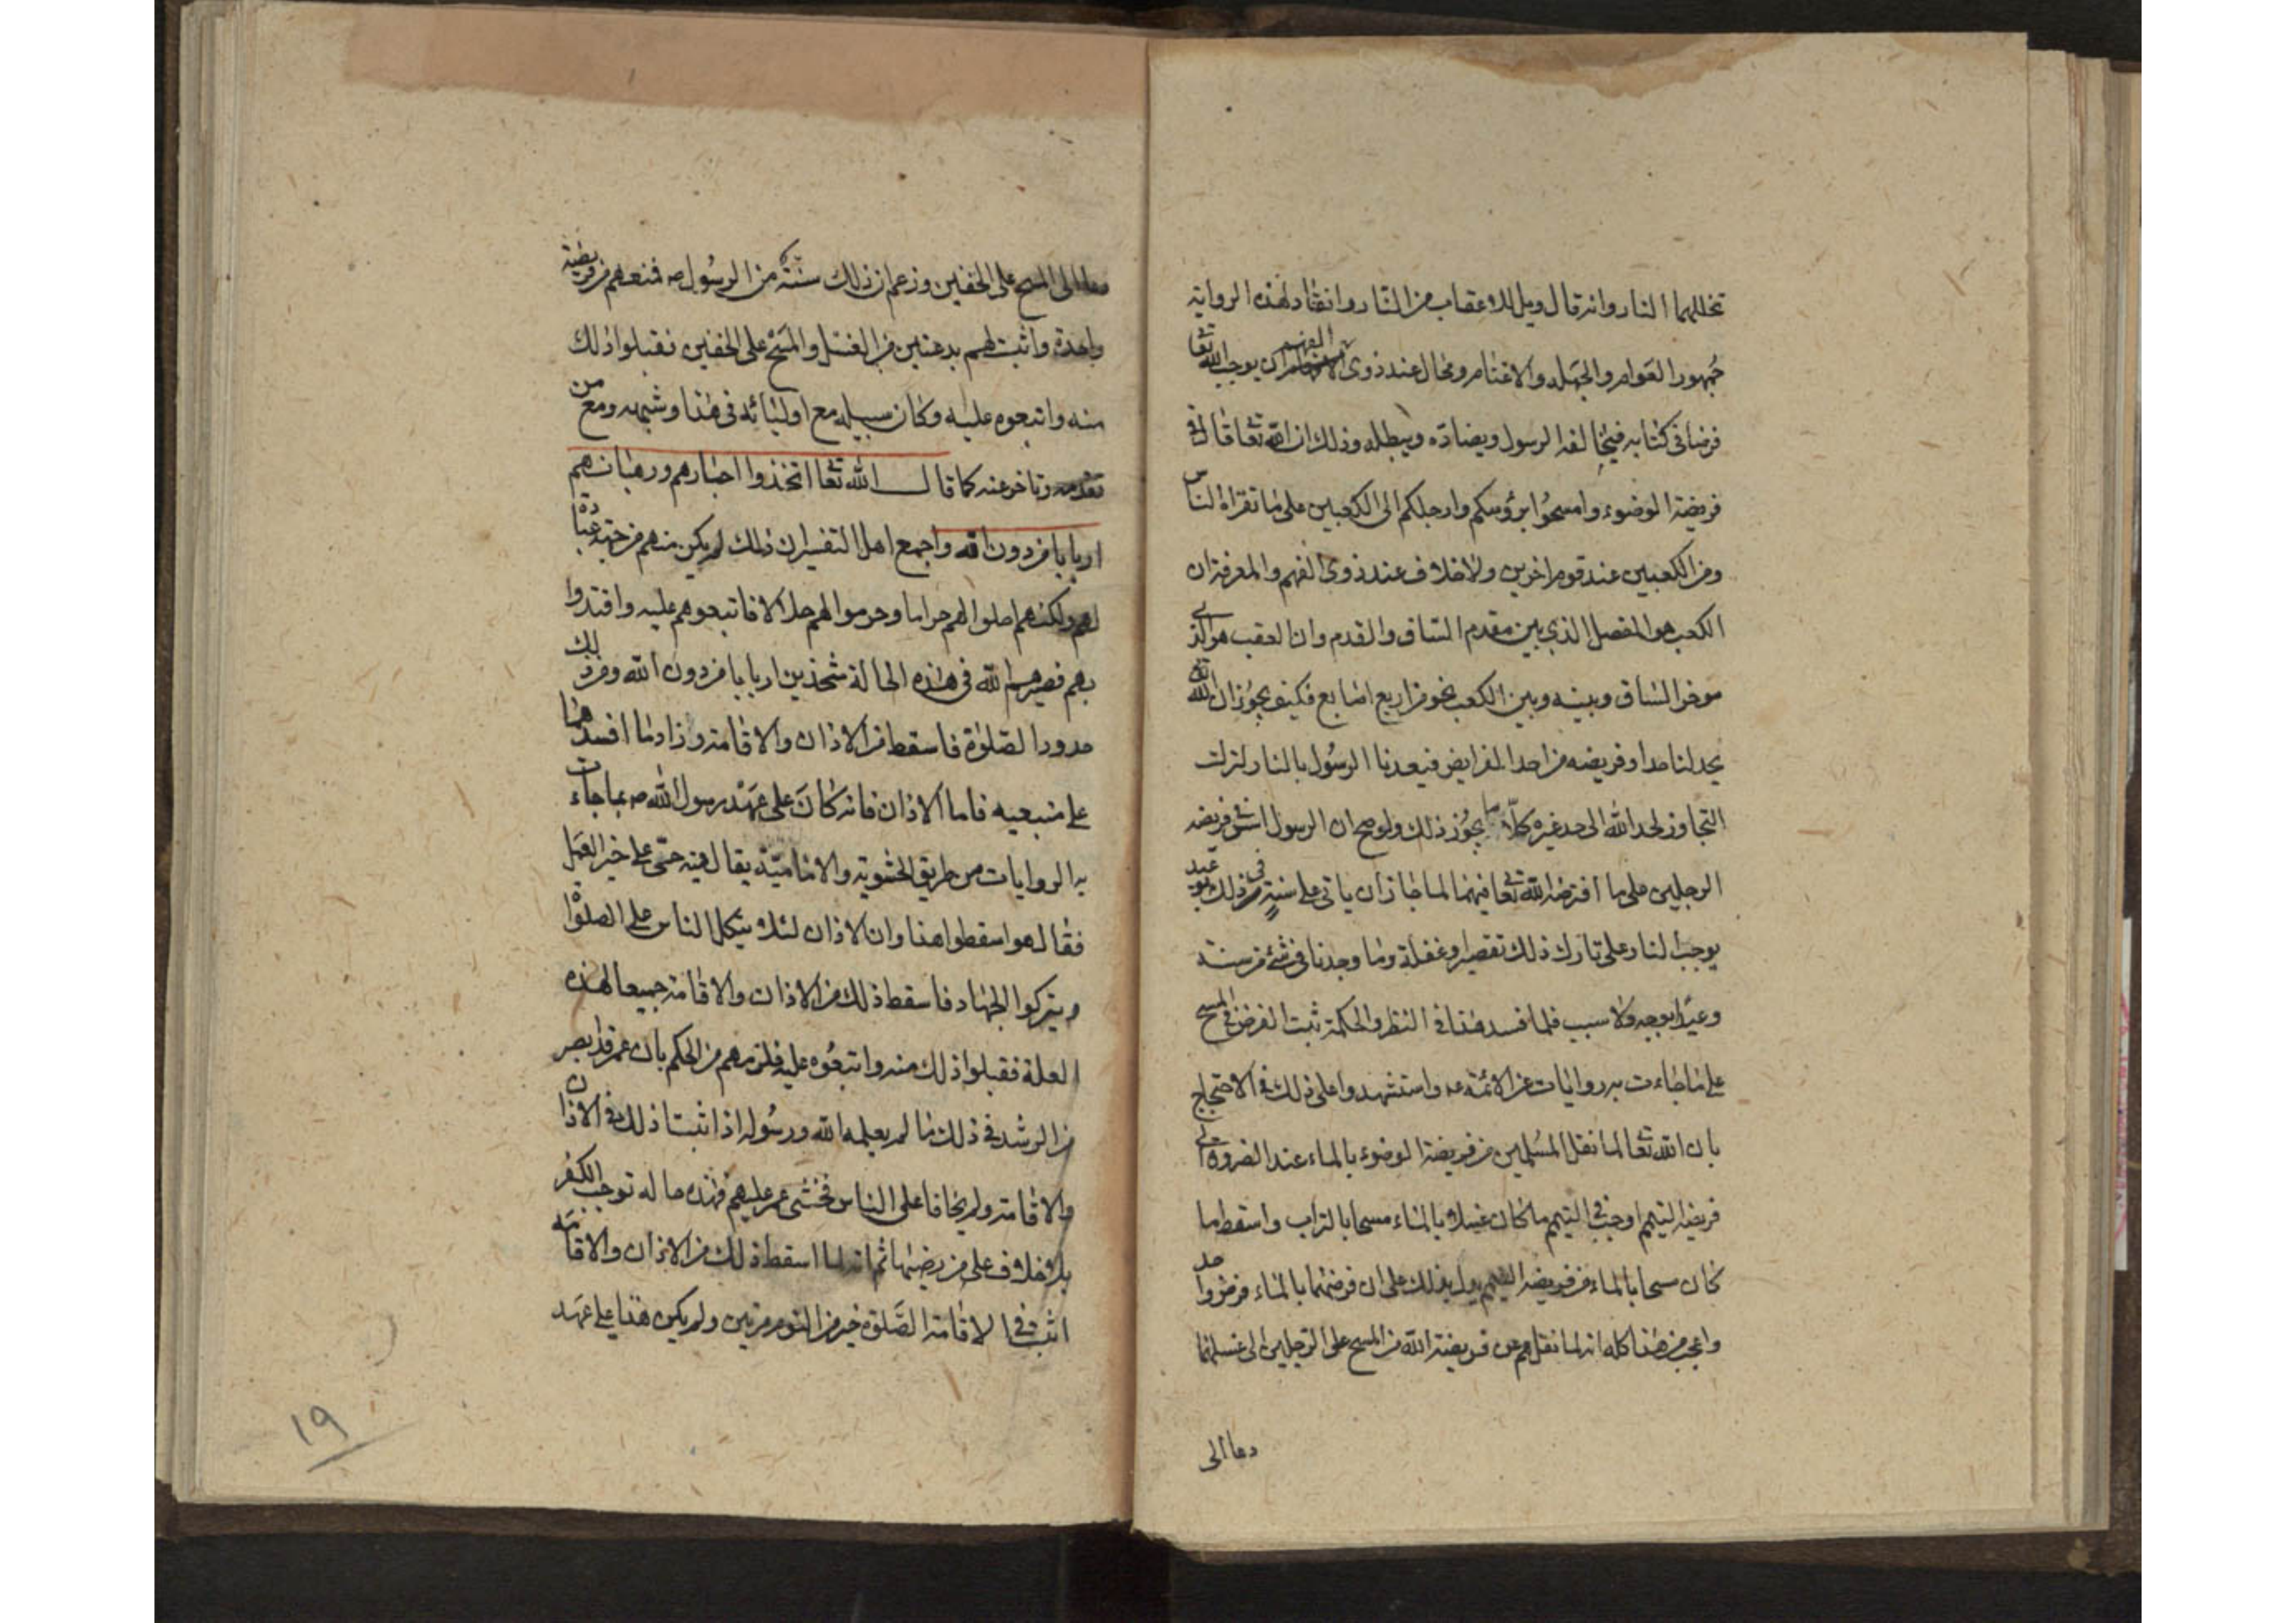 تخللهما النار وانه قال ويل للاعقاب من النار وانقاد لهذه الرواية
جمهور العوام والجهلة والاغنام ومحال عند ذوى الفهم ان يوجب الله تعا
فرضا فى كتابه فيخالفه الرسول ويضاده ويبطله وذلك ان الله تعا قال فى
فريضة الوضوء وامسحوا برؤسكم وارجلكم الى الكعبين على ما تقراه الناس
ومن الكعبين عند قوم اخرين ولا خلاف عند ذوى الفهم والمعرفة ان
الكعب هو المفصل الذى بين مقدم الساق والقدم وان العقب هو الذى
موخر الساق وبينه وبين الكعب نحو من اربع اصابع فكيف يجوز ان الله تع
يحد لنا حدا وفريضه من احد الفرايض فيعدنا الرسول بالنار لترك
التجاوز لحد الله الى حد غيره كلا ما يجوز ذلك ولو صح ان الرسول فريضه
الرجلين على ما افترضه الله تعا فيهما لما جاز ان ياتى على سنة فى ذلك
يوجب النار على تارك ذلك تقصير وغفلة وما وجدنا فى شئ من سنته
وعيدا بوجه ولا سبب فلما فسد هذا فى النظر والحكمة ثبت الفرض فى المسح
على ما جاءت به روايات عن الائمة عه واستشهدوا على ذلك فى الاحتجاج
بان الله تعا لما نقل المسلمين من فريضة الوضوء بالماء عند الضرورة الى
فريضة التيمم اوجب فى التيمم ما كان غسلا بالماء مسحا بالتراب واسقط ما
كان مسحا بالماء من فريضة التيمم يدل بذلك على ان فرضهما بالماء
واعجب من هذا كله انه لما نقلهم عن فريضة الله من المسح على الرجلين الى غسلهما
دعا الى
الى المسح على الخفين وزعم ان ذلك سنة من الرسول ص فمنعهم من فريضة
واحدة واثبت لهم بدعتين من الغسل والمسح على الخفين فقبلوا ذلك
منه واتبعوه عليه وكان سبيله مع اوليائه فى هذا وشبهه ومع من
تقدمه وتاخر عنه كما قال الله تعا اتخذوا احبارهم ورهبانهم
اربابا من دون الله واجمع اهل التفسير ان ذلك لم يكن منهم من جهة عبادة
لهم ولكنهم احلوا لهم حراما وحرموا لهم حلالا فاتبعوهم عليه واقتدوا
بهم فصيرهم الله فى هذه الحالة متخذين اربابا من دون الله ومن ذلك
حدود الصلوة فاسقط من الاذان والاقامة وزاد ما افسدهما
على متبعيه فاما الاذان فانه كان على عهد رسول الله ص بما جاءت
به الروايات من طريق الحشوية والامامية يقال فيه حى على خير العمل
فقال هو اسقطوا هذا وان الاذان لئلا يتكل الناس على الصلوة
ويتركوا الجهاد فاسقط ذلك من الاذان والاقامة جميعا لهذه
العلة فقبلوا ذلك منه واتبعوه عليه فلزمهم من الحكم بان عمر قد ابصر
من الرشد فى ذلك ما لم يعلمه الله ورسوله اذ اثبتا ذلك فى الاذان
والاقامة ولم يخافا على الناس فخشى عمر عليهم فهذه حاله توجب الكفر
بلا خلاف على من رضيها ثم انه لما اسقط ذلك من الاذان والاقامة
اثبت فى الاقامة الصلوة خير من النوم مرتين ولم يكن هذا على عهد
١٩